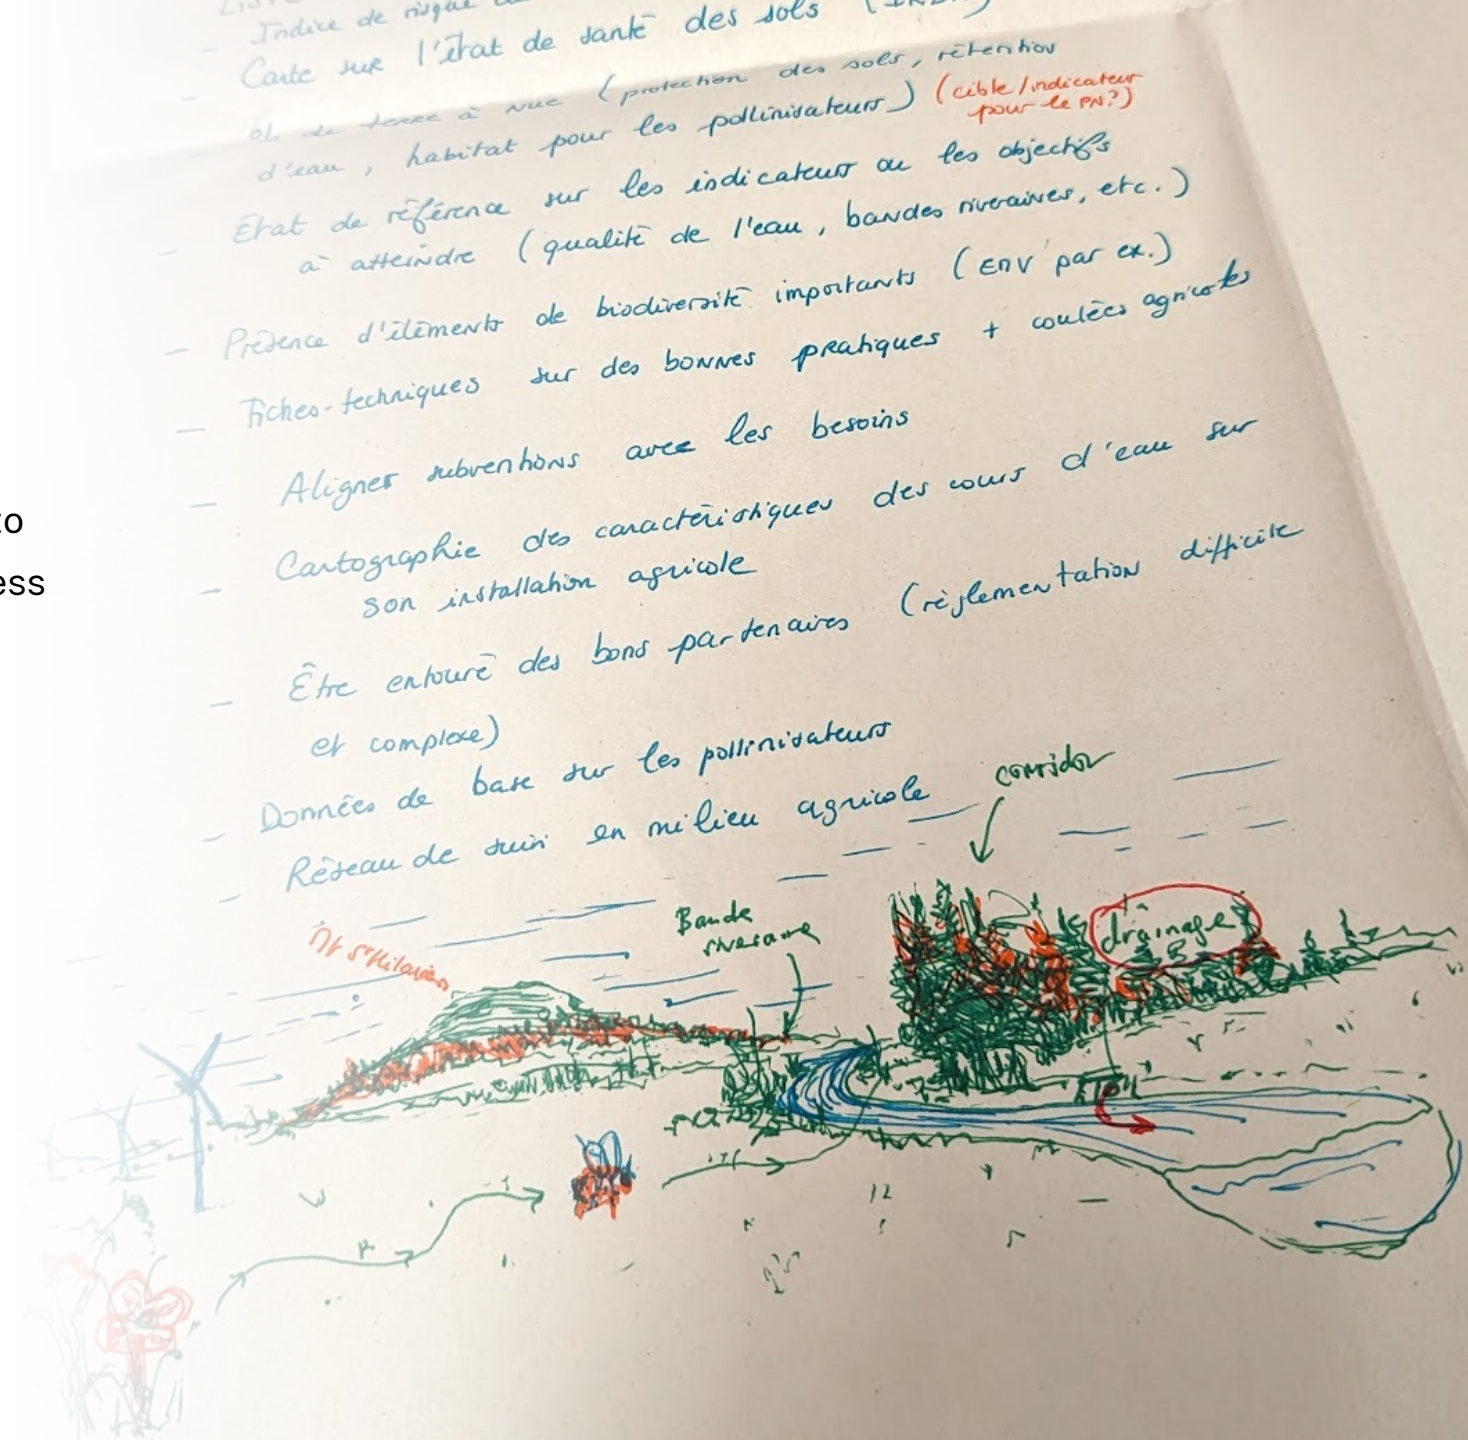 - Indice de risque
- Carte sur l'état de santé des sols
de terre à nue (protection des sols, rétention
d'eau, habitat pour les pollinisateurs) (cible/indicateur
pour le PN?)
- État de référence sur les indicateurs ou les objectifs
à atteindre (qualité de l'eau, bandes riveraines, etc.)
- Présence d'éléments de biodiversité importants (ENV par ex.)
- Fiches-techniques sur des bonnes pratiques + coulées agricoles
- Aligner subventions avec les besoins
- Cartographie des caractéristiques des cours d'eau sur
son installation agricole
- Être entouré des bons partenaires (règlementation difficile
et complexe)
- Données de base sur les pollinisateurs
- Réseau de suivi en milieu agricole
corridor
drainage
Bande
riveraine
Mt St Hilaire
to
ess